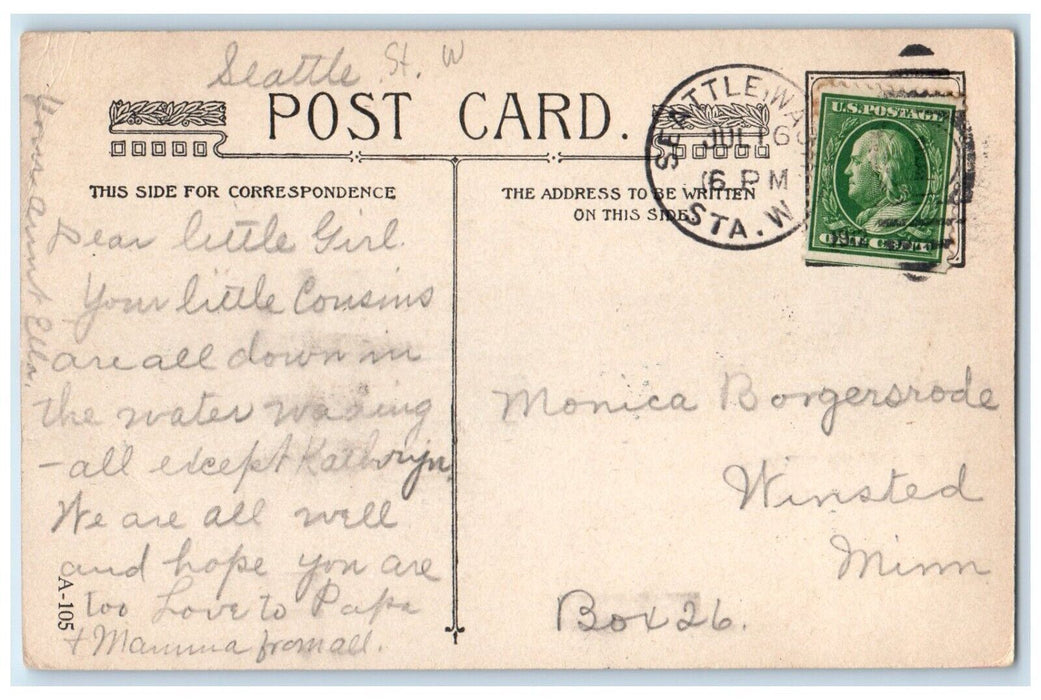 Seattle St. W
POST CARD.
THIS SIDE FOR CORRESPONDENCE
Dear little Girl.
Your little Cousins
are all down in
the water wading
- all except Kathryn.
We are all well
and hope you are
too Love to Papa
+ Mamma from all.
Aunt Ella.
A-105
THE ADDRESS TO BE WRITTEN
ON THIS SIDE
SEATTLE, WA
JUL 16
6 PM
STA. W
U.S. POSTAGE
ONE CENT
Monica Borgersrode
Winsted
Minn
Box 26.